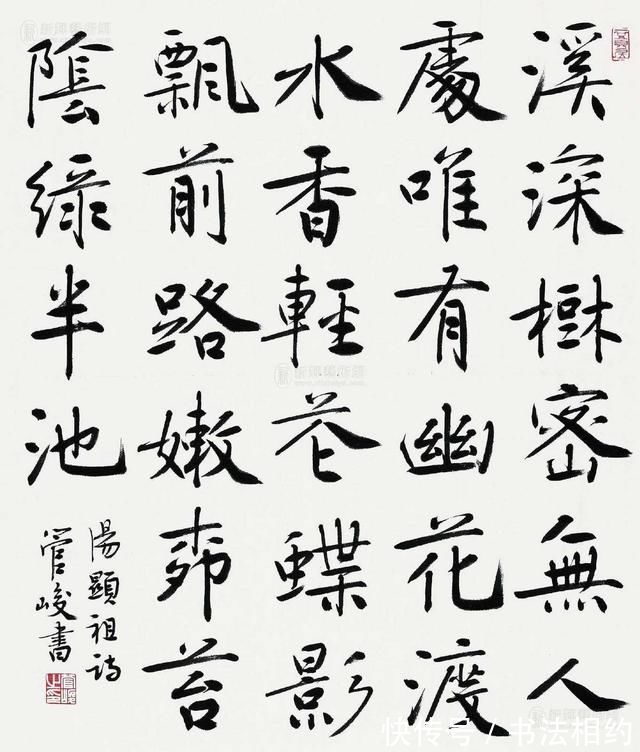 溪深樹密無人
處唯有幽花渡
水香輕花蝶影
飄前路嫩苔
陰綠半池
湯顯祖詩
管峻書
快传号 / 书法相约